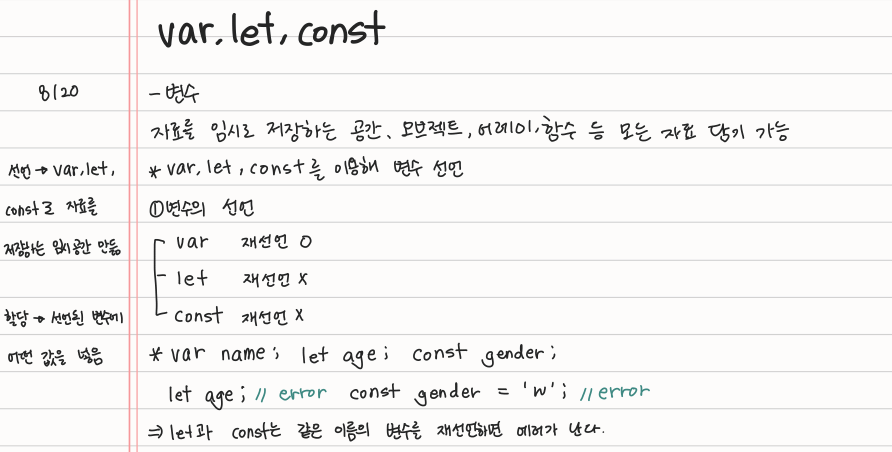 var, let, const
8/20
- 변수
자료를 임시로 저장하는 공간、오브젝트, 어레이, 함수 등 모든 자료 담기 가능
선언 → var, let,
const로 자료를
저장하는 임시공간 만듦
할당 → 선언된 변수에
어떤 값을 넣음
* var, let, const를 이용해 변수 선언
①변수의 선언
var 재선언 O
let 재선언 X
const 재선언 X
* var name; let age; const gender;
let age; // error const gender = 'w'; // error
⇒ let과 const는 같은 이름의 변수를 재선언하면 에러가 난다.